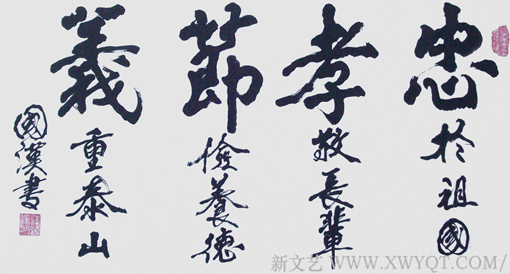 忠於祖國
孝敬長輩
節儉養德
義重泰山
國漢書
新文艺 WWW.XWYQT.COM/